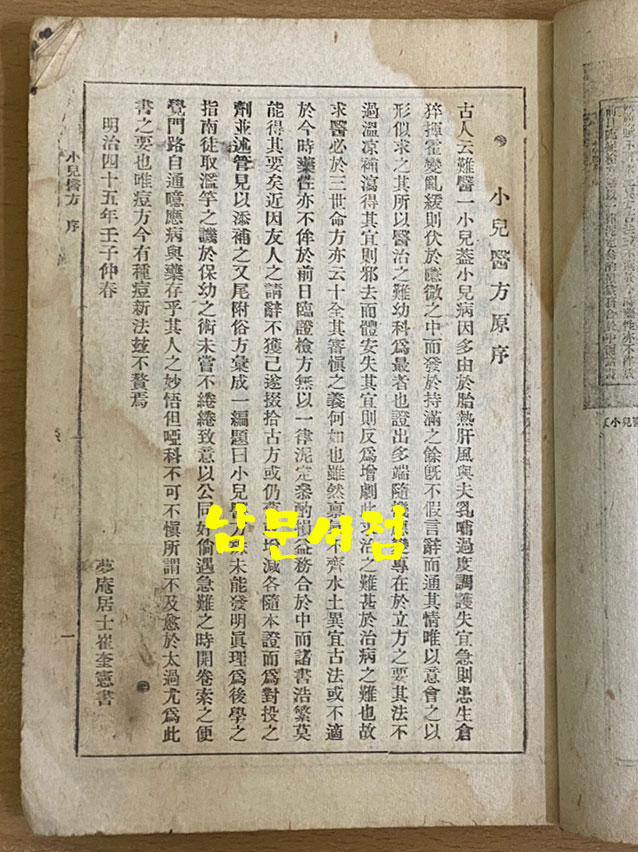 小兒醫方原序
古人云難醫一小兒蓋小兒病因多由於胎熱肝風與夫乳哺過度調護失宜急則患生倉
猝揮霍亂緩則伏於隱微之中而發於持滿之餘旣不假言辭而通其情唯以意會之以
形似求之其所以醫治之難幼科爲最者也證出多端隨機 變專在於立方之要其法不
過溫凉補瀉得其宜則邪去而體安失其宜則反爲增劇此求治之難甚於治病之難也故
求醫必於三世命方亦云十全其審愼之義何如也雖然稟 不齊水土異宜古法或不適
於今時藥性亦不侔於前日臨證檢方無以一律泥定 酌損益務合於中而諸書浩繁莫
能得其要矣近因友人之請辭不獲已遂掇拾古方或仍 減各隨本證而爲對投之
劑並述管見以添補之又尾附俗方彙成一編題曰小兒醫 未能發明眞理爲後學之
指南徒取濫竽之譏於保幼之術未嘗不綣綣致意以公同好倘遇急難之時開卷索之便
覺門路自通噫應病與藥存乎其人之妙悟但啞科不可不愼所謂不及愈於太過尤爲此
書之要也唯痘方今有種痘新法玆不贅焉
明治四十五年壬子仲春
夢庵居士崔奎憲書
小兒醫方 序
一
남문서점